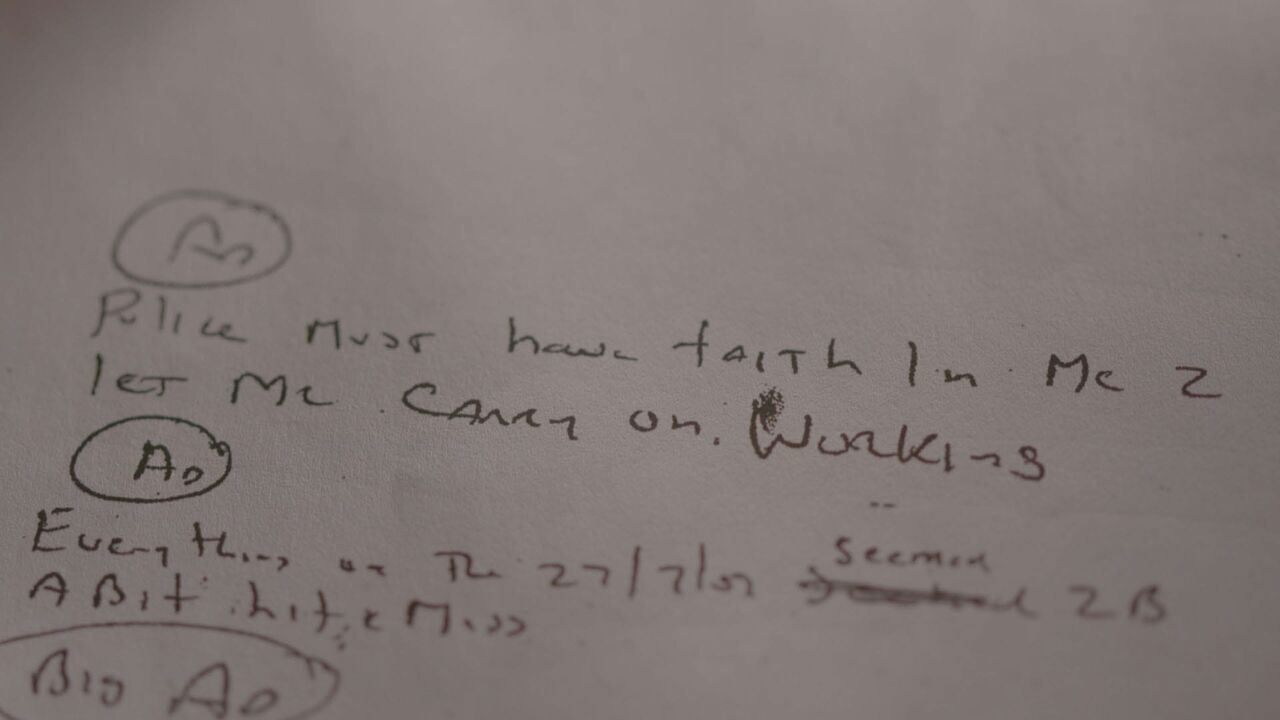 Ao
Police Must have faith In Me 2
let Me Carry on. Working
Ao
Everything on The 27/7/07 Seemed 2 B
A Bit hit & Miss
Big Ao